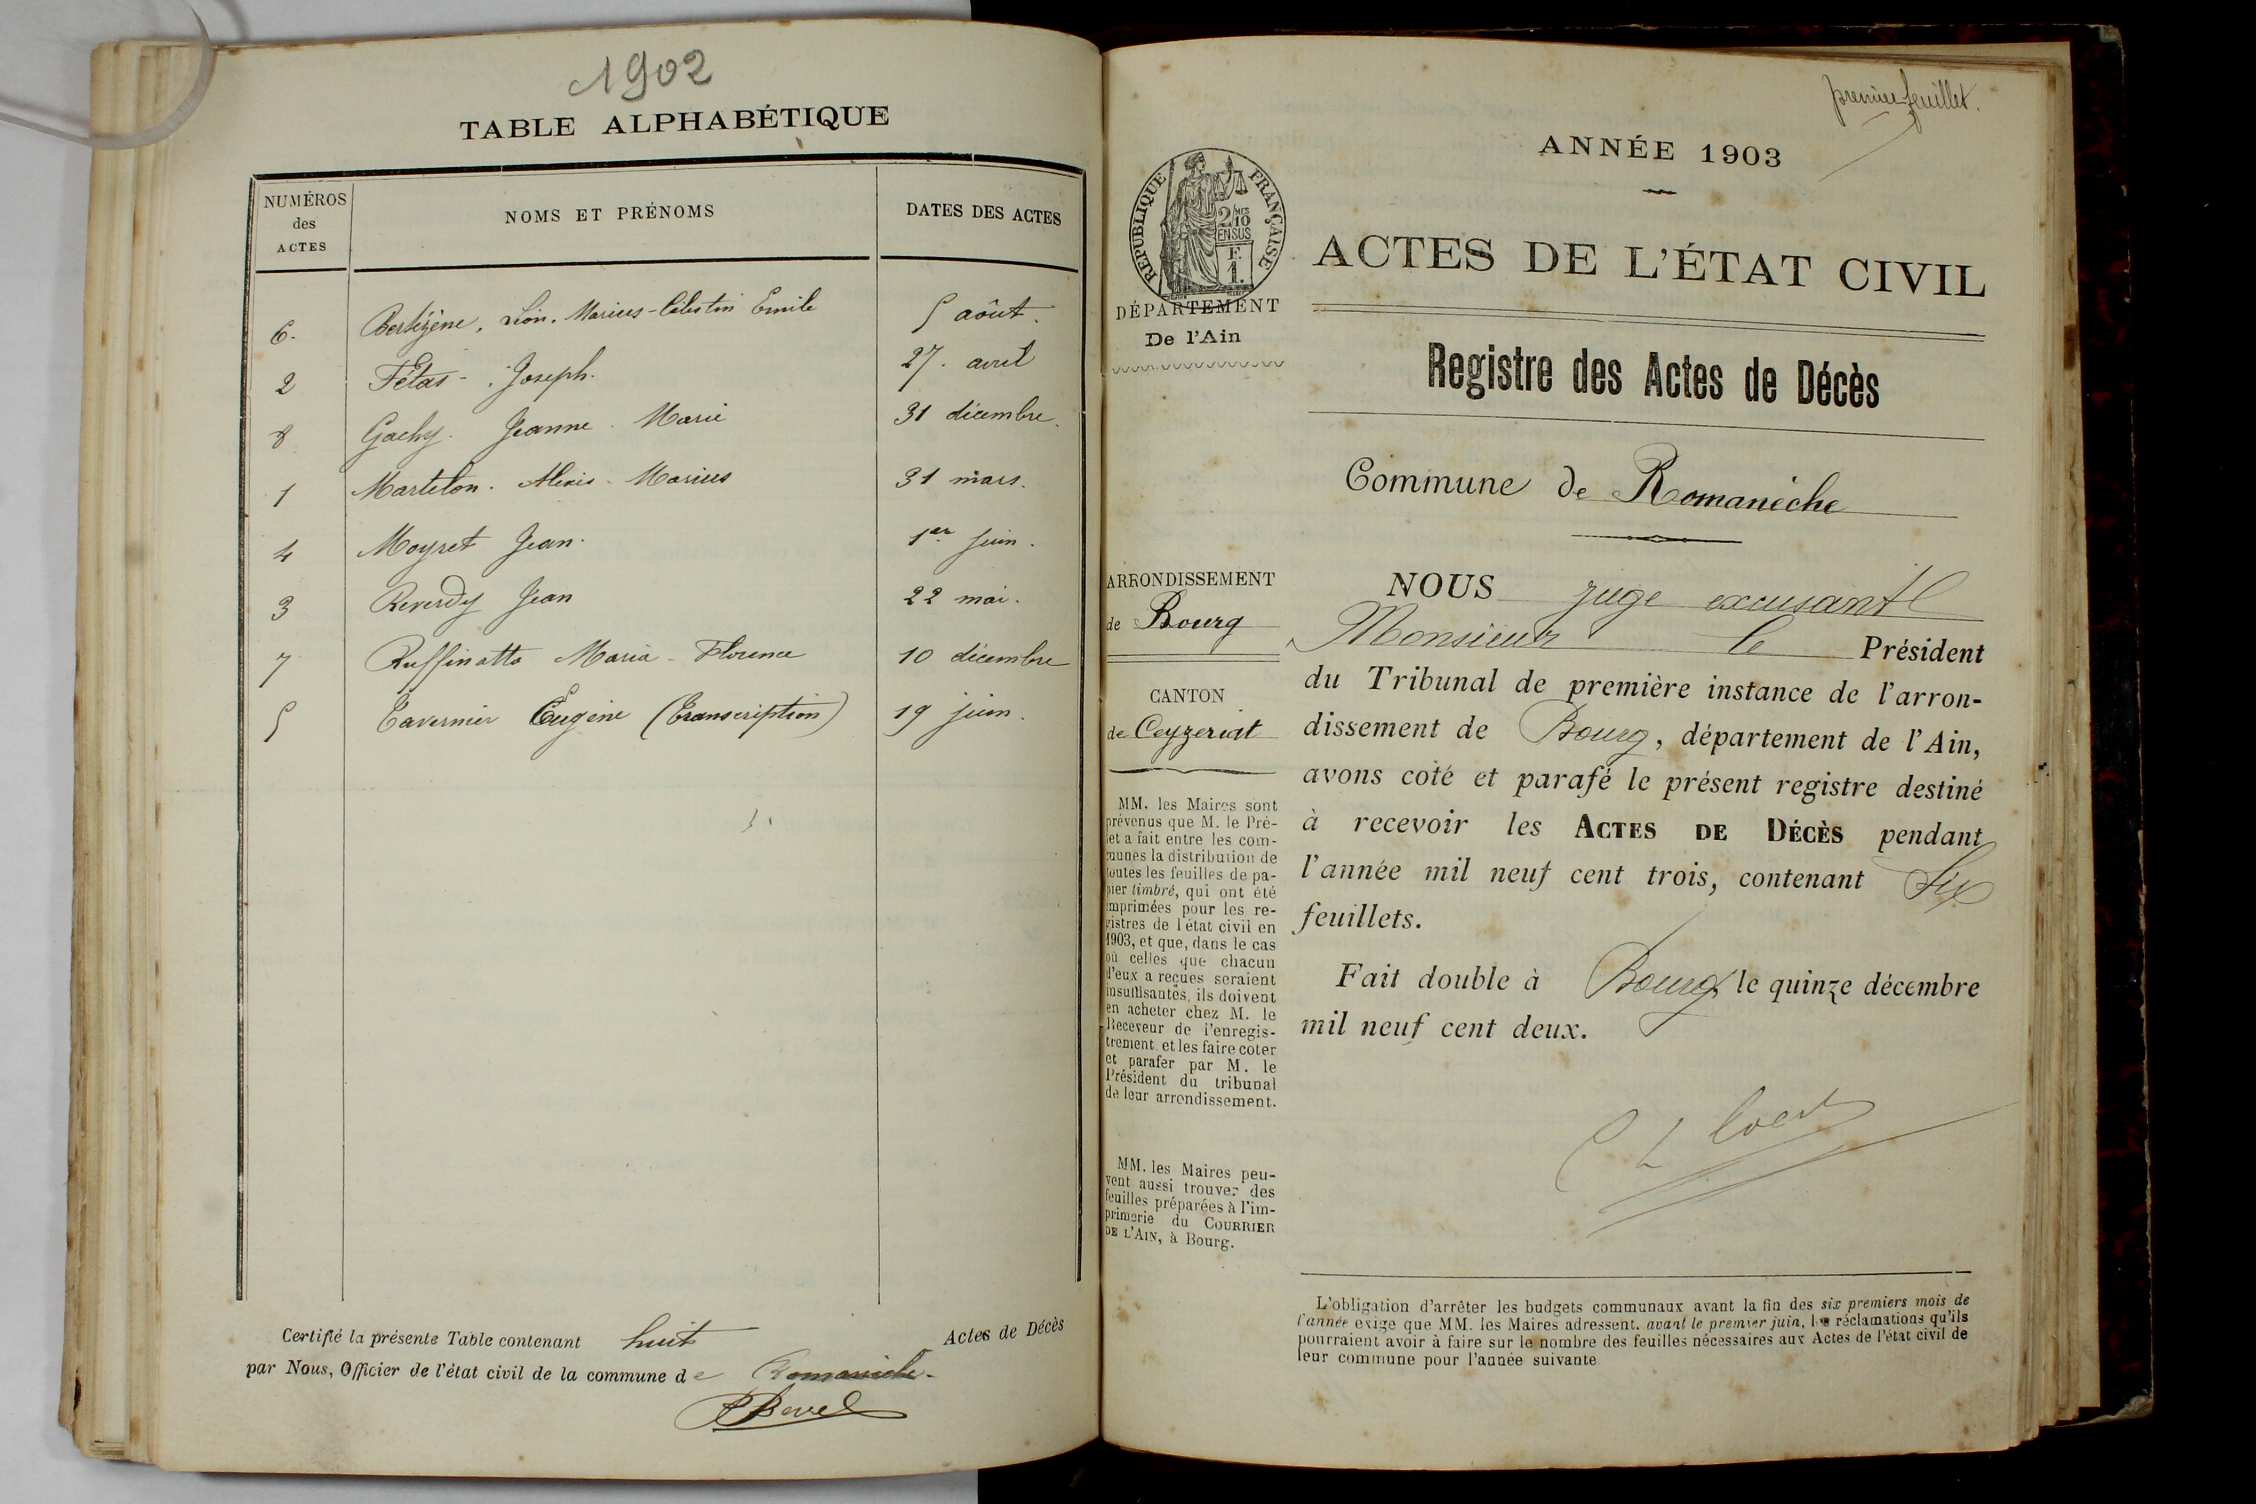 1902
TABLE ALPHABÉTIQUE
NUMÉROS des ACTES NOMS ET PRÉNOMS DATES DES ACTES
6. Bertézène, Léon, Marius-Célestin Emile 5 août.
2 Fétas - Joseph. 27. avril
8 Gachy. Jeanne. Marie 31 décembre.
1 Martelon. Alexis - Marius 31 mars.
4 Moyret Jean. 1er juin.
3 Reverdy Jean 22 mai.
7 Ruffinatto Maria - Florence 10 décembre
5 Tavernier Eugène (Transcription) 19 juin.
Certifié la présente Table contenant huit Actes de Décès
par Nous, Officier de l'état civil de la commune de Romanèche.
premier feuillet.
ANNÉE 1903
RÉPUBLIQUE FRANÇAISE
2/10 MES
EN SUS
F.
1.
ACTES DE L'ÉTAT CIVIL
DÉPARTEMENT
De l'Ain
Registre des Actes de Décès
Commune de Romanèche
ARRONDISSEMENT
de Bourg
CANTON
de Ceyzeriat
MM. les Maires sont
prévenus que M. le Pré-
fet a fait entre les com-
munes la distribution de
toutes les feuilles de pa-
pier timbré, qui ont été
imprimées pour les re-
gistres de l'état civil en
1903, et que, dans le cas
où celles que chacun
d'eux a reçues seraient
insuffisantes, ils doivent
en acheter chez M. le
Receveur de l'enregis-
trement et les faire coter
et parafer par M. le
Président du tribunal
de leur arrondissement.
MM. les Maires peu-
vent aussi trouver des
feuilles préparées à l'im-
primerie du COURRIER
DE L'AIN, à Bourg.
NOUS juge excusant
Monsieur le Président
du Tribunal de première instance de l'arron-
dissement de Bourg, département de l'Ain,
avons coté et parafé le présent registre destiné
à recevoir les ACTES DE DÉCÈS pendant
l'année mil neuf cent trois, contenant Six
feuillets.
Fait double à Bourg, le quinze décembre
mil neuf cent deux.
L'obligation d'arrêter les budgets communaux avant la fin des six premiers mois de
l'année exige que MM. les Maires adressent, avant le premier juin, les réclamations qu'ils
pourraient avoir à faire sur le nombre des feuilles nécessaires aux Actes de l'état civil de
leur commune pour l'année suivante